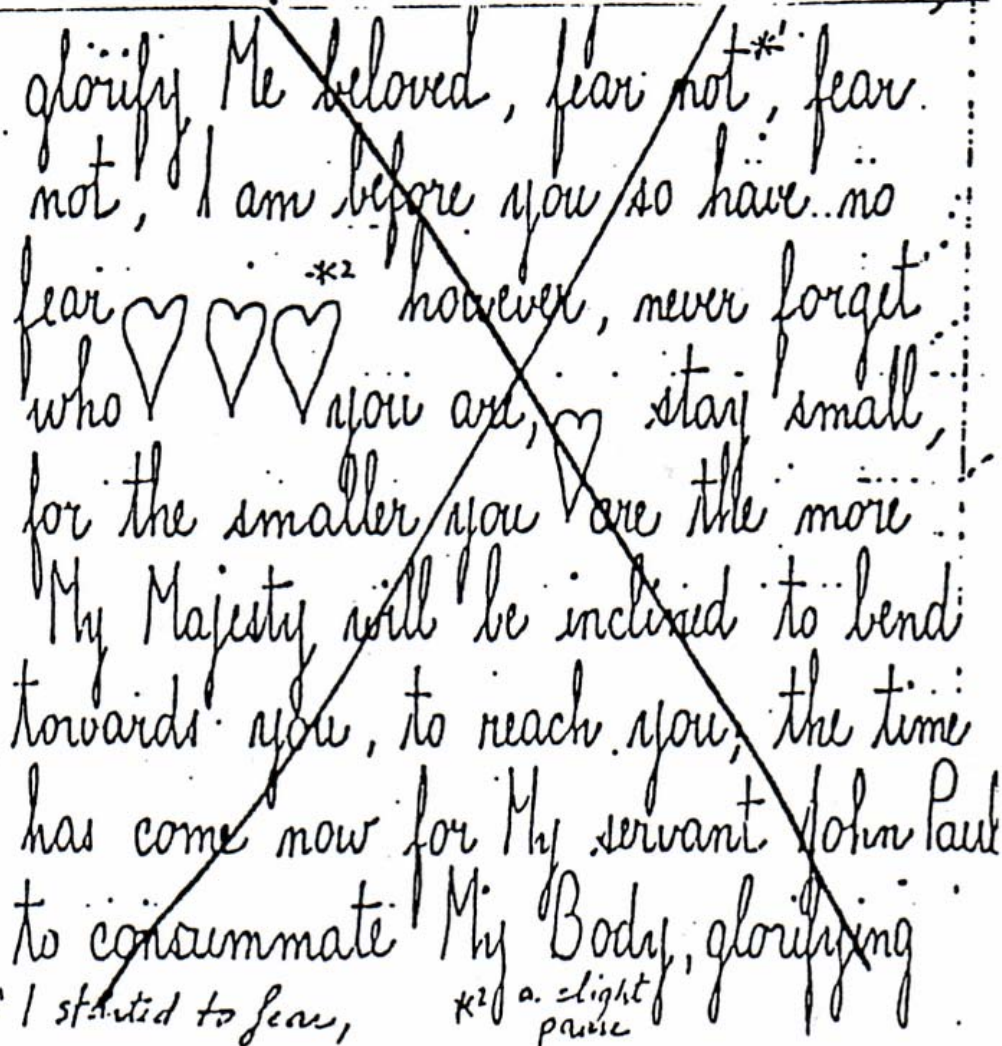 glorify Me beloved, fear not,*¹ fear
not, I am before you so have no
fear ♡♡♡*² however, never forget
who you are, ♡ stay small,
for the smaller you are the more
My Majesty will be inclined to bend
towards you, to reach you; the time
has come now for My servant John Paul
to consummate My Body, glorifying
I started to fear,
*² a slight
pause